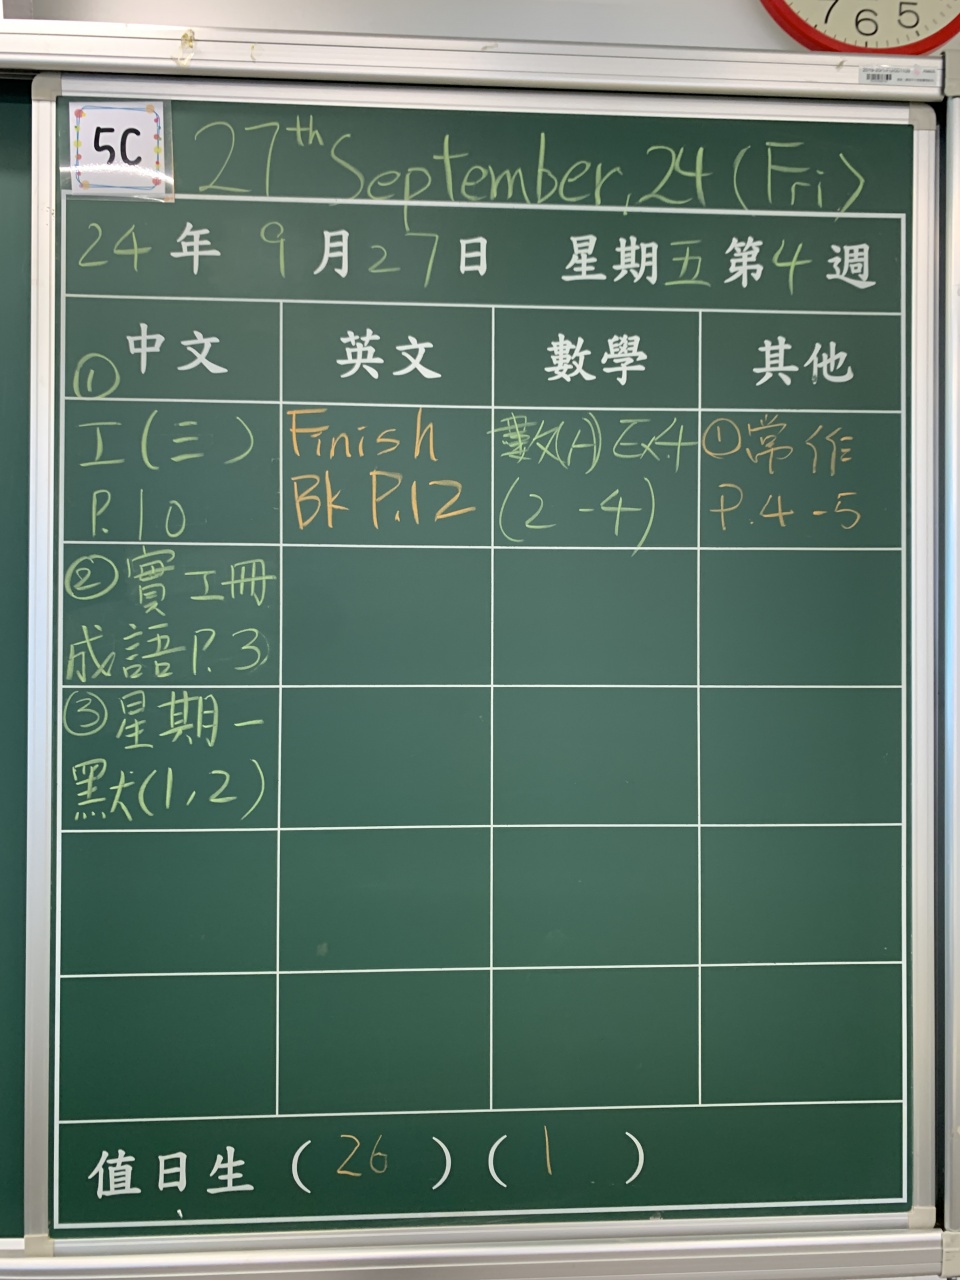 7 6 5
5C
27th September, 24 (Fri)
24年9月27日 星期五第4週
①中文
英文
數學
其他
工(三)
P.10
Finish
Bk P.12
數(A) Ex4
(2-4)
①常作
P.4-5
②實工冊
成語P.3
③星期一
默(1,2)
值日生(26)(1)